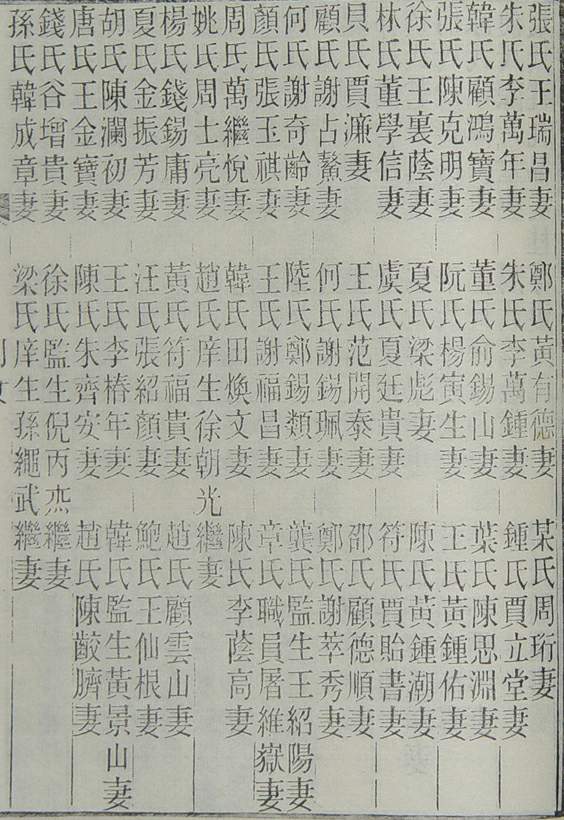 張氏王瑞昌妻 鄭氏黃有德妻 某氏周珩妻
朱氏李萬年妻 朱氏李萬鍾妻 鍾氏賈立堂妻
韓氏顧鴻寶妻 董氏俞錫山妻 葉氏陳思淵妻
張氏陳克明妻 阮氏楊寅生妻 王氏黃鍾佑妻
徐氏王裏蔭妻 夏氏梁彪妻 陳氏黃鍾潮妻
林氏董學信妻 虞氏夏廷貴妻 符氏賈貽書妻
貝氏賈濂妻 王氏范開泰妻 邵氏顧德順妻
顧氏謝占鰲妻 何氏謝錫珮妻 鄭氏謝萃秀妻
何氏謝奇齡妻 陸氏鄭錫類妻 龔氏監生王紹陽妻
顏氏張玉祺妻 王氏謝福昌妻 章氏職員屠維嶽妻
周氏萬繼悅妻 韓氏田煥文妻 陳氏李蔭高妻
姚氏周士亮妻 趙氏庠生徐朝光繼妻
楊氏錢錫庸妻 黃氏符福貴妻 趙氏顧雲山妻
夏氏金振芳妻 汪氏張紹顏妻 鮑氏王仙根妻
胡氏陳瀾初妻 王氏李椿年妻 韓氏監生黃景山妻
唐氏王金寶妻 陳氏朱齊安妻 趙氏陳臍妻
錢氏谷增貴妻 徐氏監生倪丙杰繼妻
孫氏韓成章妻 梁氏庠生孫繩武繼妻